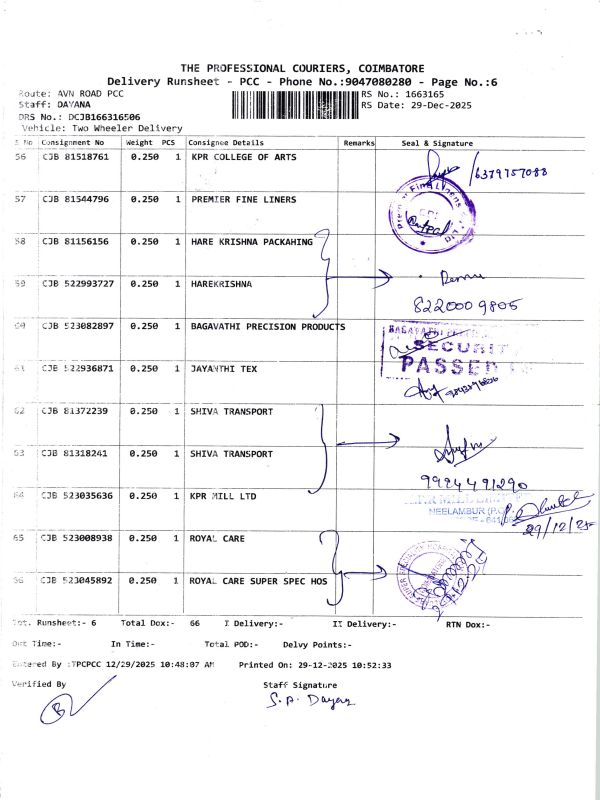 THE PROFESSIONAL COURIERS, COIMBATORE
Delivery Runsheet - PCC - Phone No.:9047080280 - Page No.:6
Route: AVN ROAD PCC RS No.: 1663165
Staff: DAYANA RS Date: 29-Dec-2025
DRS No.: DCJB166316506
Vehicle: Two Wheeler Delivery
S No Consignment No Weight PCS Consignee Details Remarks Seal & Signature
56 CJB 81518761 0.250 1 KPR COLLEGE OF ARTS 6379757088
57 CJB 81544796 0.250 1 PREMIER FINE LINERS
58 CJB 81156156 0.250 1 HARE KRISHNA PACKAHING
59 CJB 522993727 0.250 1 HAREKRISHNA
8220009805
60 CJB 523082897 0.250 1 BAGAVATHI PRECISION PRODUCTS
SECURITY
PASSED
61 CJB 522936871 0.250 1 JAYANTHI TEX
62 CJB 81372239 0.250 1 SHIVA TRANSPORT
63 CJB 81318241 0.250 1 SHIVA TRANSPORT
9994491290
64 CJB 523035636 0.250 1 KPR MILL LTD
NEELAMBUR
29/12/25
65 CJB 523008938 0.250 1 ROYAL CARE
66 CJB 523045892 0.250 1 ROYAL CARE SUPER SPEC HOS
Tot. Runsheet:- 6 Total Dox:- 66 I Delivery:- II Delivery:- RTN Dox:-
Out Time:- In Time:- Total POD:- Delvy Points:-
Entered By :TPCPCC 12/29/2025 10:48:07 AM Printed On: 29-12-2025 10:52:33
Verified By Staff Signature